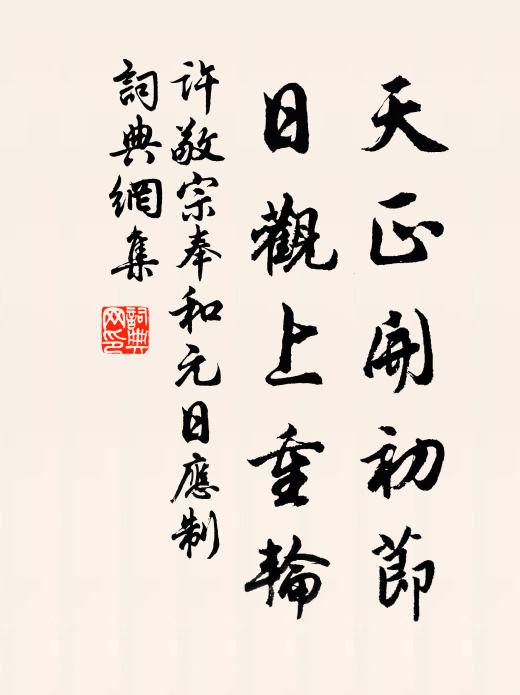 天正開初節
日觀上重輪
許敬宗奉和元日應制
詞典網集
詞典
网印